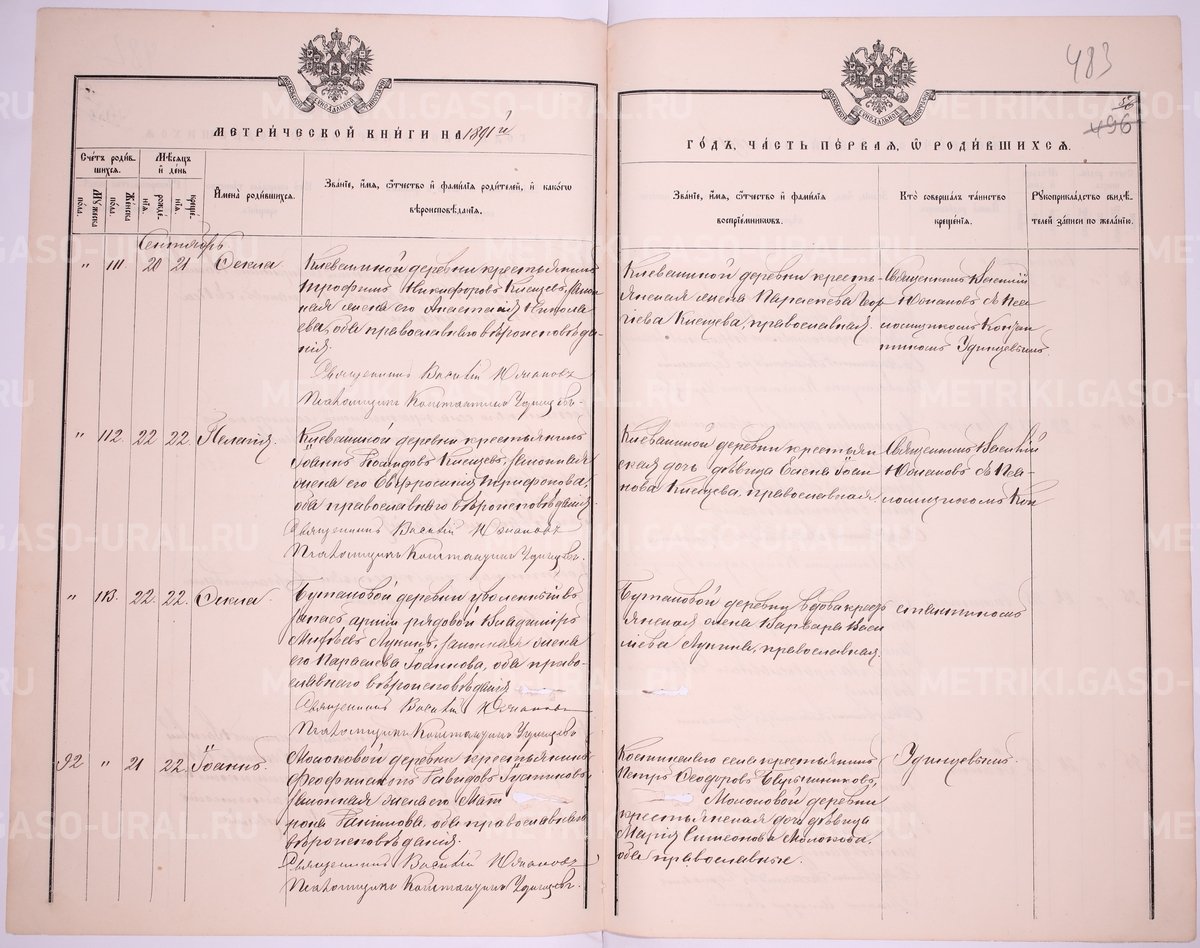 483
56
496
МЕТРИ́ЧЕСКОЙ КНИ́ГИ НА 1891й
ГО́ДЪ, ЧАСТЬ ПЕ́РВАЯ, Ѿ РОДИ́ВШИХСЯ.
Счéтъ роди́вшихся.
Мѣ́сяцъ и́ день
Мꙋжеска пóла.
Жéнска пóла.
рождéнїя.
крещéнїя.
И҆мена̀ роди́вшихся.
Звáнїе, и҆́мя, ѻ҆́тчество и҆ фами́лїя роди́телей, и҆ какóгѡ вѣроисповѣ́данїя.
Звáнїе, и҆́мя, ѻ҆́тчество и҆ фами́лїя воспрїéмниковъ.
Ктò совершáлъ тáинство крещéнїя.
Рꙋкоприклáдство свидѣ́телей зáписи по желáнїю.
Сентябрь
" 111 20 21 Ѳекла
Клевакиной деревни крестьянинъ
Трофимъ Никифоровъ Клещевъ, закон
ная жена его Анастасія Никола
ева, оба православнаго вѣроисповѣда
нія.
Священникъ Василій Южаковъ
Псаломщикъ Константинъ Удинцевъ.
Клевакиной деревни кресть-
янская жена Параскева Геор
гіева Клещева, православная.
Священникъ Василій
Южаковъ съ Пса
ломщикомъ Констан
тиномъ Удинцевымъ.
" 112. 22 22. Пелагія.
Клевакиной деревни крестьянинъ
Іоаннъ Клещевъ, законная
жена его Евфросинія Трифонова,
оба православнаго вѣроисповѣданія.
Священникъ Василій Южаковъ
Псаломщикъ Константинъ Удинцевъ.
Клевакиной деревни крестьян
ская дочь дѣвица Елена Іоан
нова Клещева, православная
Священникъ Василій
Южаковъ съ Пса
ломщикомъ Кон
" 113. 22. 22. Ѳекла.
деревни уволенный въ
запасъ арміи рядовой Владиміръ
Лукинъ, законная жена
его Параскева Іоаннова, оба право-
славнаго вѣроисповѣданія
Священникъ Василій Южаковъ
Псаломщикъ Константинъ Удинцевъ.
деревни вдова крест
янская жена Варвара Васи
ліева Лукина, православная.
стантиномъ
92 " 21 22. Іоаннъ
Молоковой деревни крестьянинъ
Феофилактъ Давидовъ
законная жена его Мат
рона оба православнаго
вѣроисповѣданія.
Священникъ Василій Южаковъ
Псаломщикъ Константинъ Удинцевъ.
села крестьянинъ
Петръ Ѳеодоровъ
Молоковой деревни
крестьянская дочь дѣвица
Марія Симеонова Молокова,
оба православные.
Удинцевымъ.
METRIKI.GASO-URAL.RU